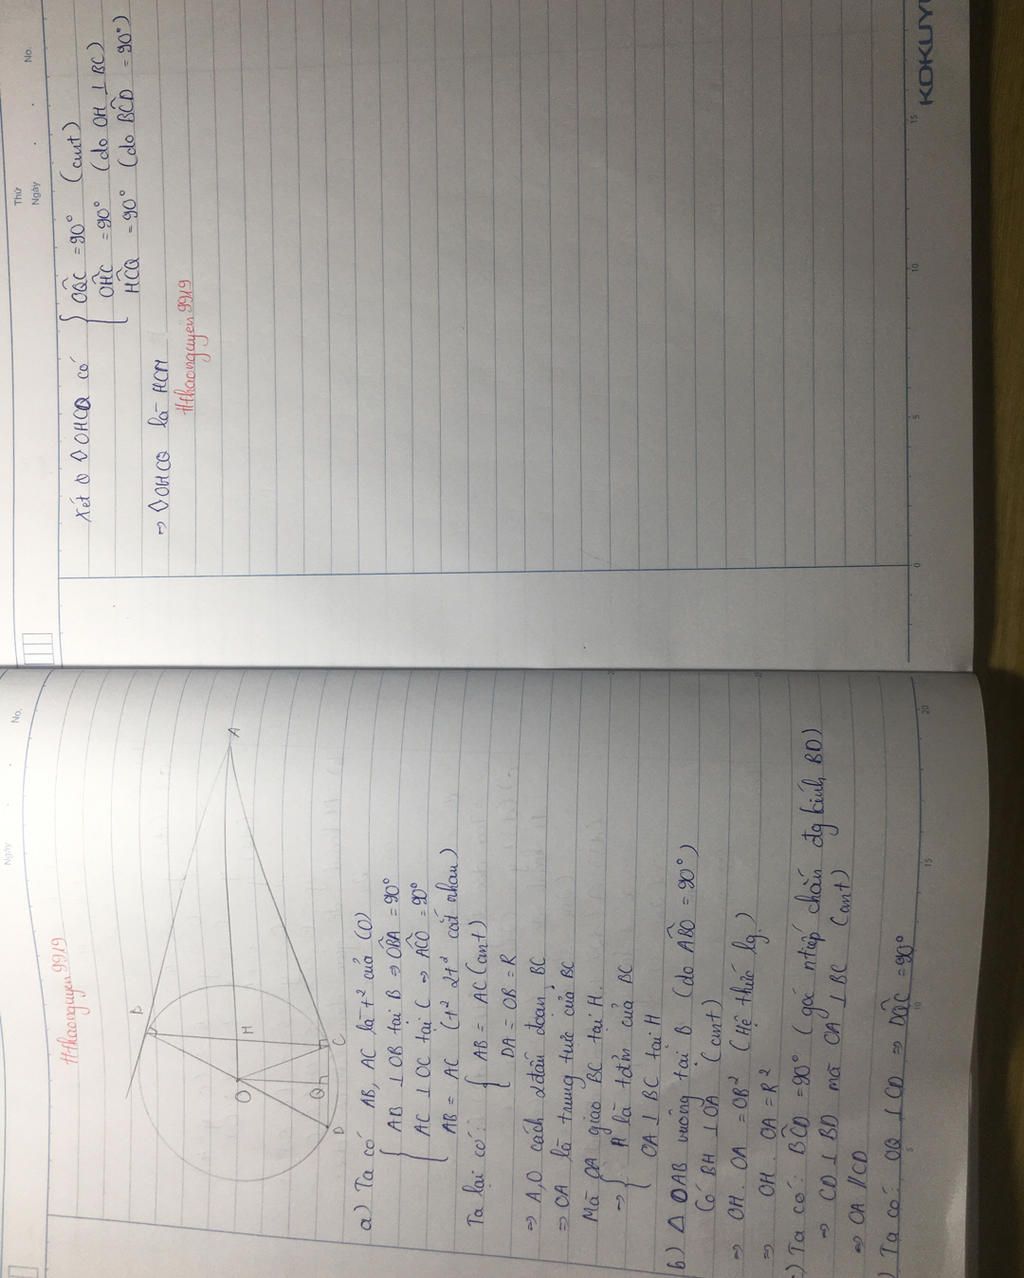 Ngày
No.
#thaonguyen9919
B
A
O
H
Q
C
D
a) Ta có AB, AC là t² của (O)
AB ⊥ OB tại B ⇒ OB̂A = 90°
AC ⊥ OC tại C ⇒ AĈO = 90°
AB = AC (t² 2t² cắt nhau)
Ta lại có: { AB = AC (cmt)
OA = OB = R
⇒ A,O cách 2 đầu đoạn BC
⇒ OA là trung trực của BC
Mà OA giao BC tại H
⇒ { H là tđ'm của BC
OA ⊥ BC tại H
b) Δ OAB vuông tại B (do AB̂O = 90°)
Có BH ⊥ OA (cmt)
⇒ OH . OA = OB² (Hệ thức lg)
⇒ OH . OA = R²
) Ta có: BĈD = 90° (góc ntiếp chắn đg kính BD)
⇒ CD ⊥ BD mà OA ⊥ BC (cmt)
⇒ OA // CD
) Ta có: OQ ⊥ CD ⇒ DQ̂C = 90°
5
10
15
20
Thứ
Ngày
No.
Xét ◊ OHCQ có { OQ̂C = 90° (cmt)
OĤC = 90° (do OH ⊥ BC)
HĈQ = 90° (do BĈD = 90°)
⇒ ◊ OHCQ là HCN
#thaonguyen9919
0
5
10
15
KOKUYO